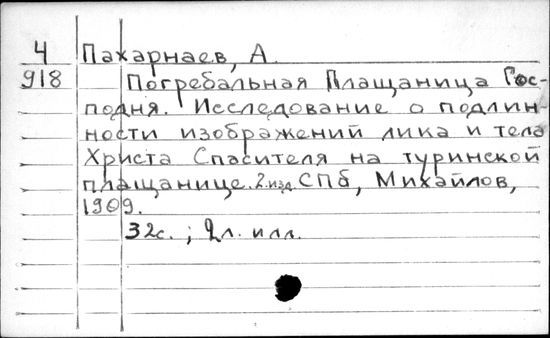 4 Пахарнаев, А.
918 Погребальная Плащаница Гос-
подня. Исследование о подлин-
ности изображений лика и тела
Христа Спасителя на туринской
плащанице. 2. изд. СПб, Михайлов,
1909.
32с. ; 2л. илл.